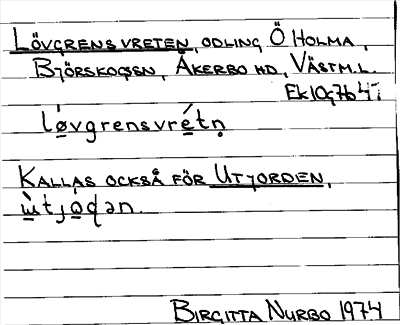 LÖVGRENSVRETEN, ODLING Ö HOLMA,
BJÖRSKOGSN, ÅKERBO HD, VÄSTM.L.
EK10g7b4i
lǿ̱vgrensvré̱tn̥
KALLAS OCKSÅ FÖR UTJORDEN,
ɯ̱̀tjo̱ɖən.
BIRGITTA NURBO 1974